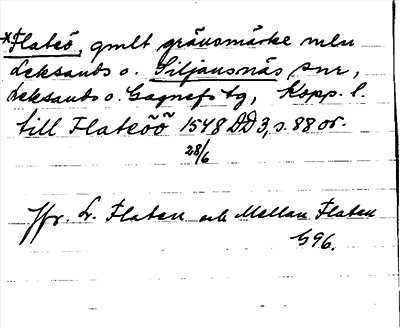 *Flateö, gmlt gränsmärke mln
Leksands o. Siljansnäs snr,
Leksands o. Gagnefs tg, Kopp. l.
till Flateöö 1548 DD 3, s. 88 or.
28/6
Jfr. L. Flaten och Mellan Flaten
G96.